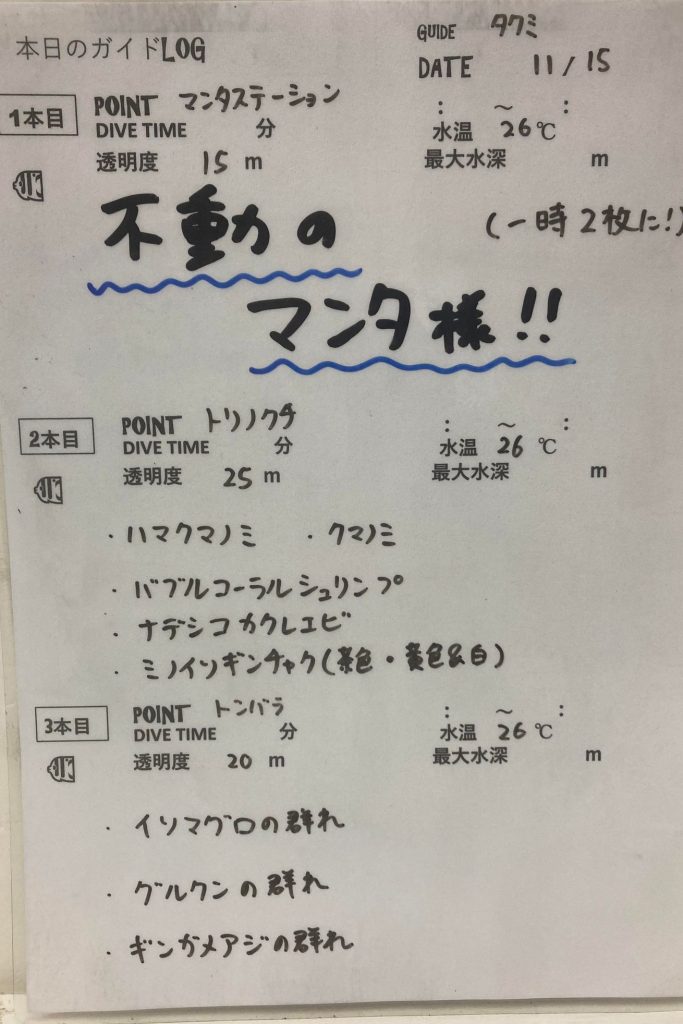 本日のガイドLOG
GUIDE タクミ
DATE 11/15
1本目 POINT マンタステーション : ～ :
DIVE TIME 分 水温 26℃
透明度 15 m 最大水深 m
不動の (一時2枚に!)
マンタ様!!
2本目 POINT トリノクチ : ～ :
DIVE TIME 分 水温 26℃
透明度 25 m 最大水深 m
・ハマクマノミ ・クマノミ
・バブルコーラルシュリンプ
・ナデシコカクレエビ
・ミノイソギンチャク(茶色・黄色&白)
3本目 POINT トンバラ : ～ :
DIVE TIME 分 水温 26℃
透明度 20 m 最大水深 m
・イソマグロの群れ
・グルクンの群れ
・ギンガメアジの群れ